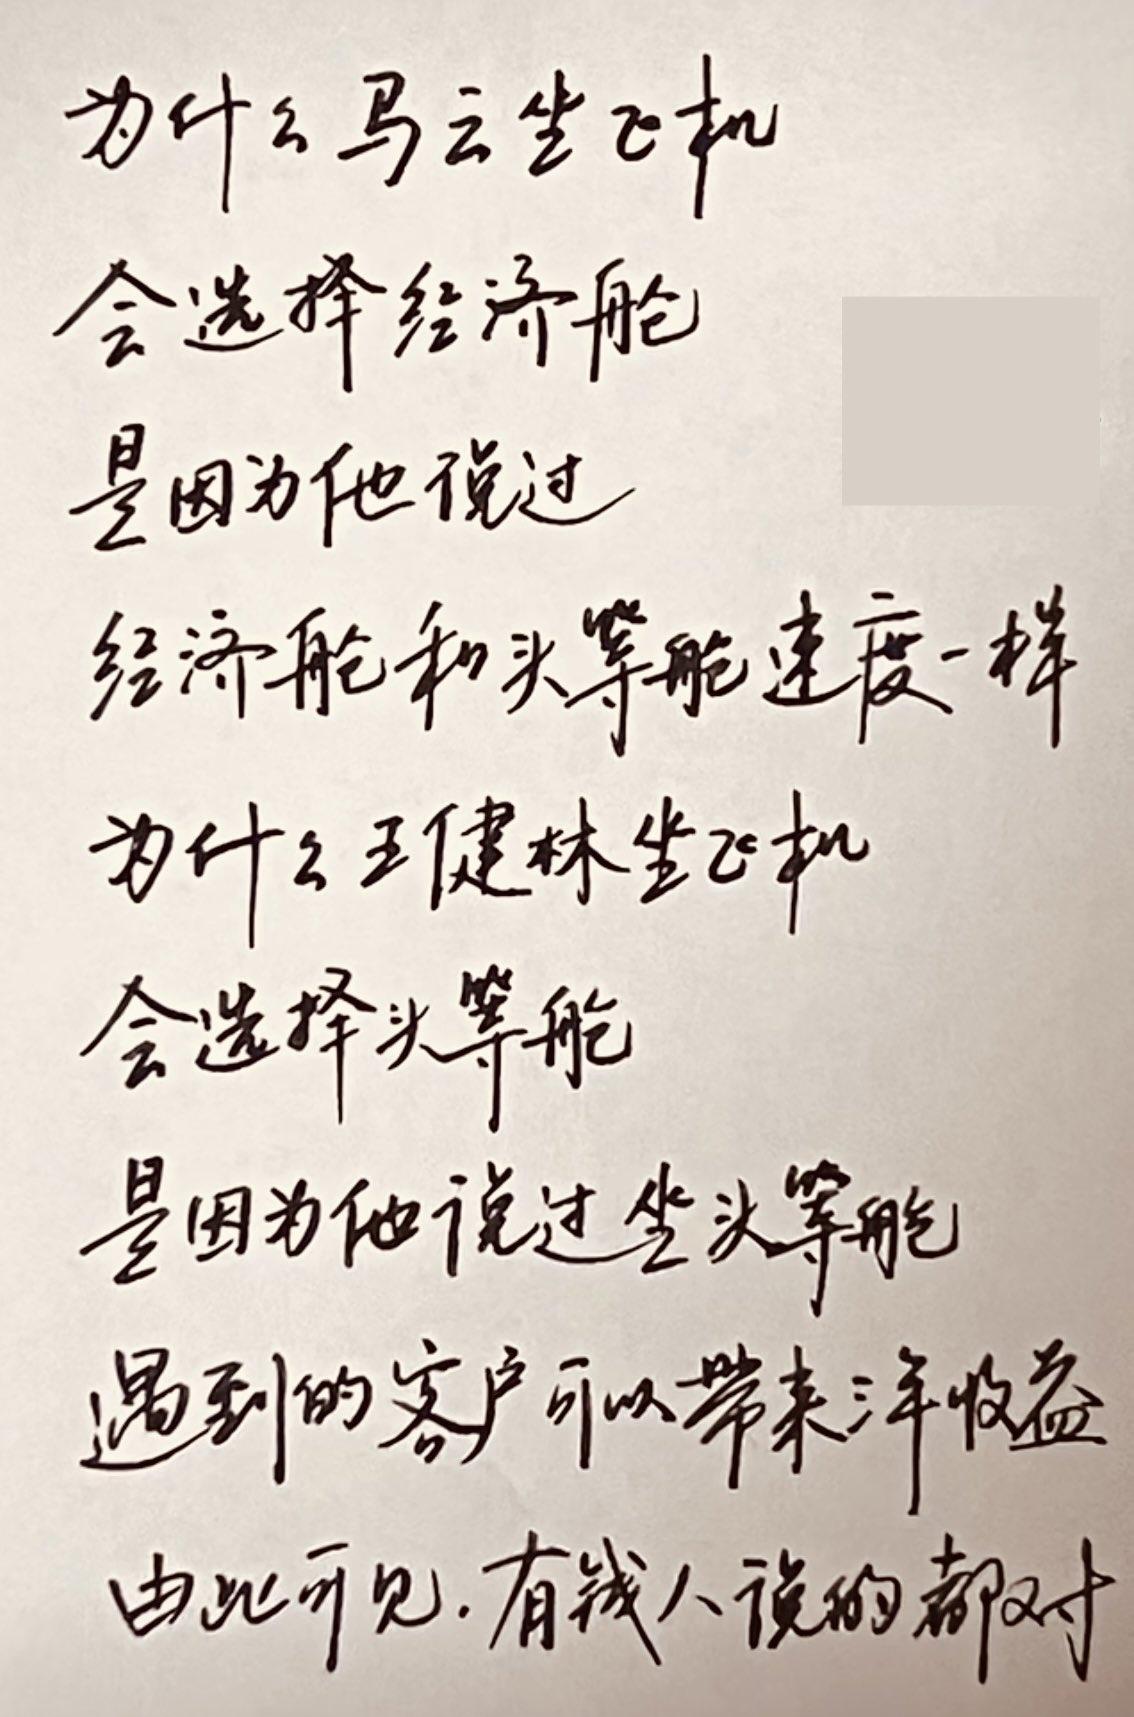 为什么马云坐飞机
会选择经济舱
是因为他说过
经济舱和头等舱速度一样
为什么王健林坐飞机
会选择头等舱
是因为他说过坐头等舱
遇到的客户可以带来三年收益
由此可见.有钱人说的都对